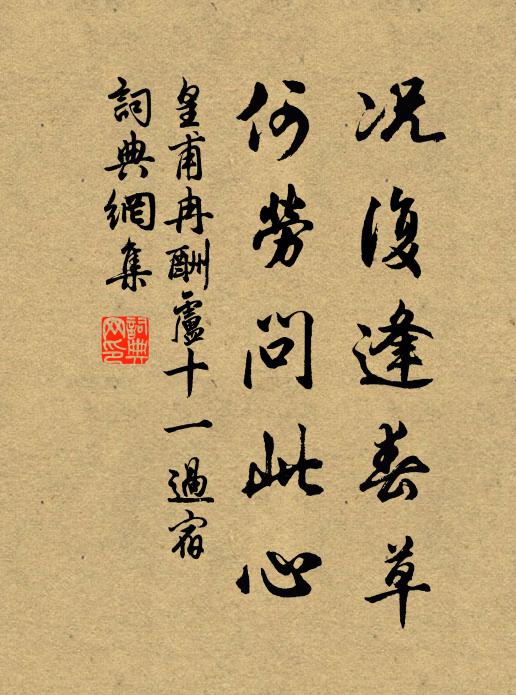 况復逢春草
何勞問此心
皇甫冉酬盧十一過宿
詞典網集
詞典網印